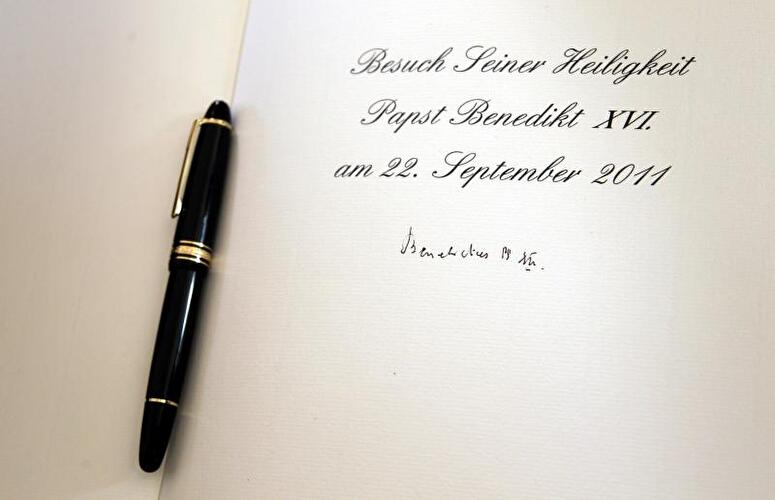 Besuch Seiner Heiligkeit
Papst Benedikt XVI.
am 22. September 2011
Benedictus PP XVI.